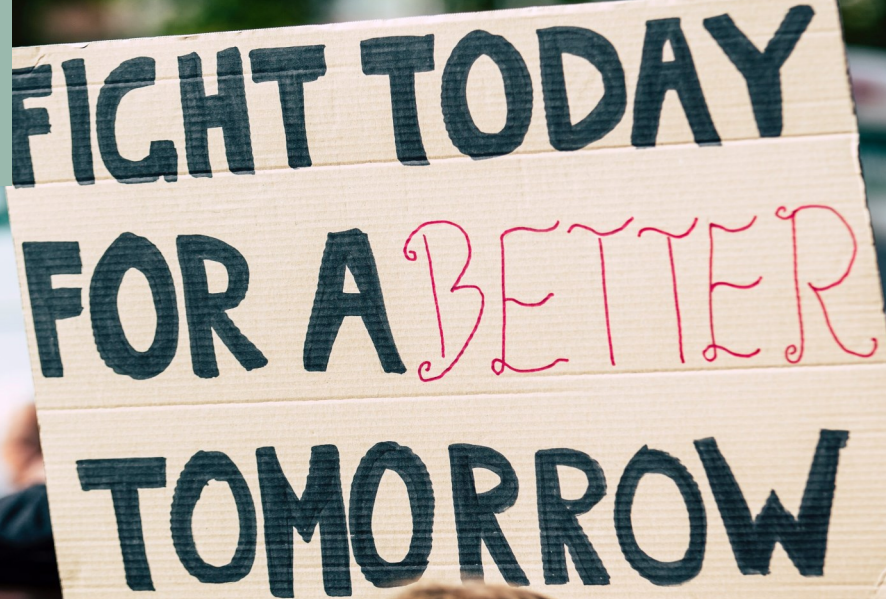 FIGHT TODAY
FOR A BETTER
TOMORROW